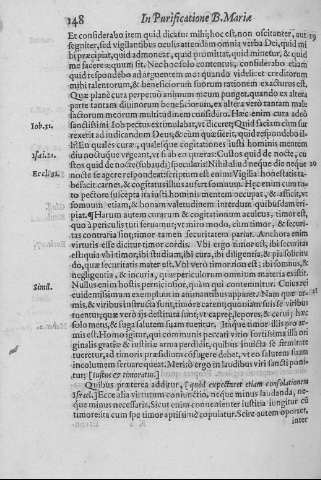 148
In Purificatione B. Mariæ
Et considerabo item quid dicatur mihi; hoc est, non oscitanter, aut 19
segniter, sed vigilantibus oculis attendam omnia verba Dei, quid mi
hi præcipiat, quid admoneat, quid promittat, quid minetur, & quid
me facere æquum sit. Nec hoc solo contentus, considerabo etiam
quid respondebo ad arguentem me: quando videlicet creditorum
mihi talentorum, & beneficiorum suorum rationem exacturus est.
Quæ planè cura perpetuò animum meum punget, quando ex altera
parte tantam diuinorum beneficiorum, ex altera verò tantam male
factorum meorum multitudinem considero. Hæc enim cura adeò
Iob. 31. sanctissimi Iob pectus extimulabat, vt diceret; Quid faciam cùm sur
rexerit ad iudicandum Deus, & cùm quæsierit, quid respondebo il-
li? En quales curæ, qualesque cogitationes iusti hominis mentem
Isai. 21. diu noctuque vrgeant, vt si ab eo quæras: Custos quid de nocte, cu
stos quid de nocte? subaudi, specularis? Nihil aliud neque die neque 20
Eccli. 31. nocte se agere respondeat: scriptum est enim: Vigilia honestatis ta-
befaciet carnes, & cogitatus illius aufert somnum. Hæc enim cura tan
to pectore suscepta ita iusti hominis mentem occupat, & afficit, vt
somnum etiam, & bonam valetudinem interdum quibusdam eri-
piat. ¶ Harum autem curarum & cogitationum aculeus, timor est,
quo à periculis tuti seruamur; vt miro modo, cùm timor, & securi-
tas contraria sint, timor tamen securitatem pariat. Anchora enim
virtutis esse dicitur timor cordis. Vbi ergo timor est, ibi securitas
est: quia vbi timor, ibi studium, ibi cura, ibi diligentia, & pia solicitu
do, quæ securitatis mater est. Vbi verò timor non est; ibi somnus, &
negligentia, & incuria, quæ periculorum omnium materia existit.
Nullus enim hostis perniciosior, quàm qui contemnitur. Cuius rei
Simil. euidentissimum exemplum in animantibus apparet. Nam quæ ar- 21
mis, & viribus instructa sunt, timore carent; quoniam suis se viribus
tuentur; quæ verò ijs destituta sunt, vt capreæ, lepores, & cerui; hæc
solo metu, & fuga salutem suam tuentur. Itaque timor illis pro ar-
mis est. Homo igitur, qui communis peccati vitio fortissima illa ori
ginalis gratiæ & iustitiæ arma perdidit, quibus inuicta se firmitate
tueretur, ad timoris præsidium cõfugere debet, vt eo salutem suam
incolumem seruare queat. Meritò ergo in laudibus viri sancti poni-
tur, [iustus & timoratus.]
Quibus præterea additur, [quòd expectaret etiam consolationem
Israel.] Ecce alia virtutum coniunctio, neque minus laudanda, ne-
que minus necessaria. Sicut enim conuenienter iustitia iungitur cũ
timore: ita cum spe timor aptissimè copulatur. Scire autem oportet,
inter